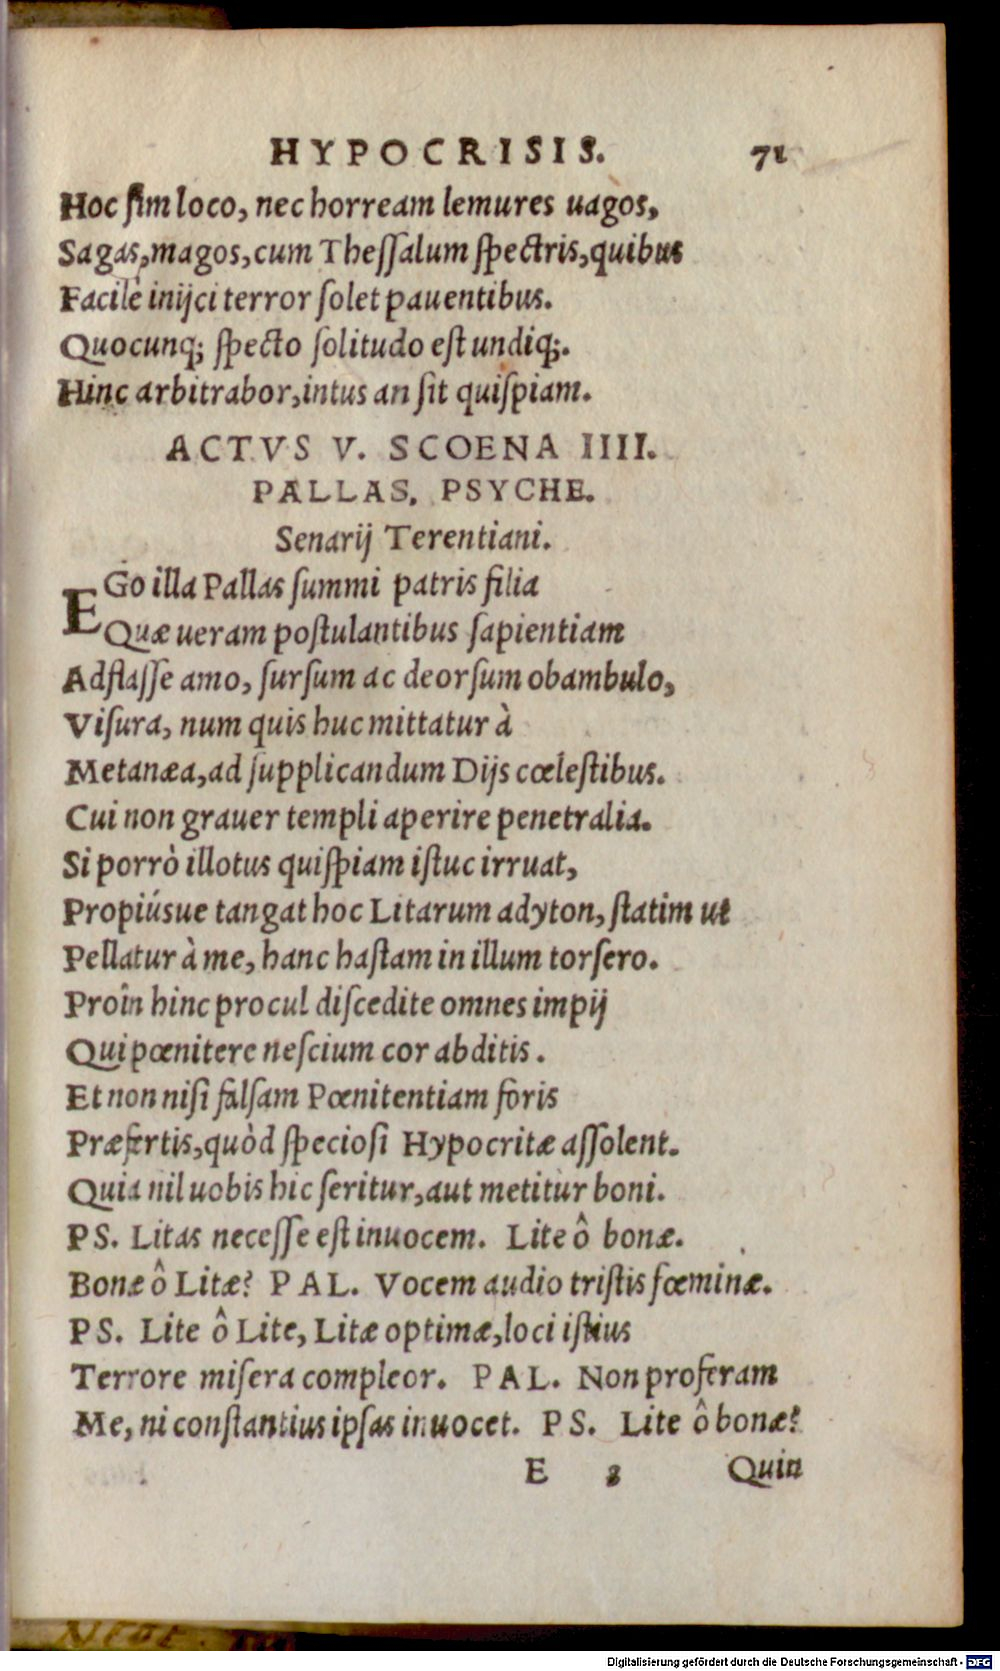 HYPOCRISIS. 71
Hoc ſim loco, nec horream lemures uagos,
Sagas, magos, cum Theſſalum ſpectris, quibus
Facilè inijci terror ſolet pauentibus.
Quocunq; ſpecto ſolitudo eſt undiq;.
Hinc arbitrabor, intus an ſit quiſpiam.
ACTVS V. SCOENA IIII.
PALLAS. PSYCHE.
Senarij Terentiani.
EGo illa Pallas ſummi patris filia
Quæ ueram poſtulantibus ſapientiam
Adſtaſſe amo, ſurſum ac deorſum obambulo,
Viſura, num quis huc mittatur à
Metanæa, ad ſupplicandum Dijs cœleſtibus.
Cui non grauer templi aperire penetralia.
Si porrò illotus quiſpiam iſtuc irruat,
Propiúsue tangat hoc Litarum adyton, ſtatim ut
Pellatur à me, hanc haſtam in illum torſero.
Proîn hinc procul diſcedite omnes impij
Qui pœnitere neſcium cor abditis.
Et non niſi falſam Pœnitentiam foris
Præfertis, quòd ſpecioſi Hypocritæ aſſolent.
Quia nil uobis hic ſeritur, aut metitur boni.
PS. Litas neceſſe eſt inuocem. Lite ô bonæ.
Bonæ ô Litæ? PAL. Vocem audio triſtis fœminæ.
PS. Lite ô Lite, Litæ optimæ, loci iſtius
Terrore miſera compleor. PAL. Non proferam
Me, ni conſtantius ipſas inuocet. PS. Lite ô bonæ?
E 3 Quin
Digitalisierung gefördert durch die Deutsche Forschungsgemeinschaft - DFG